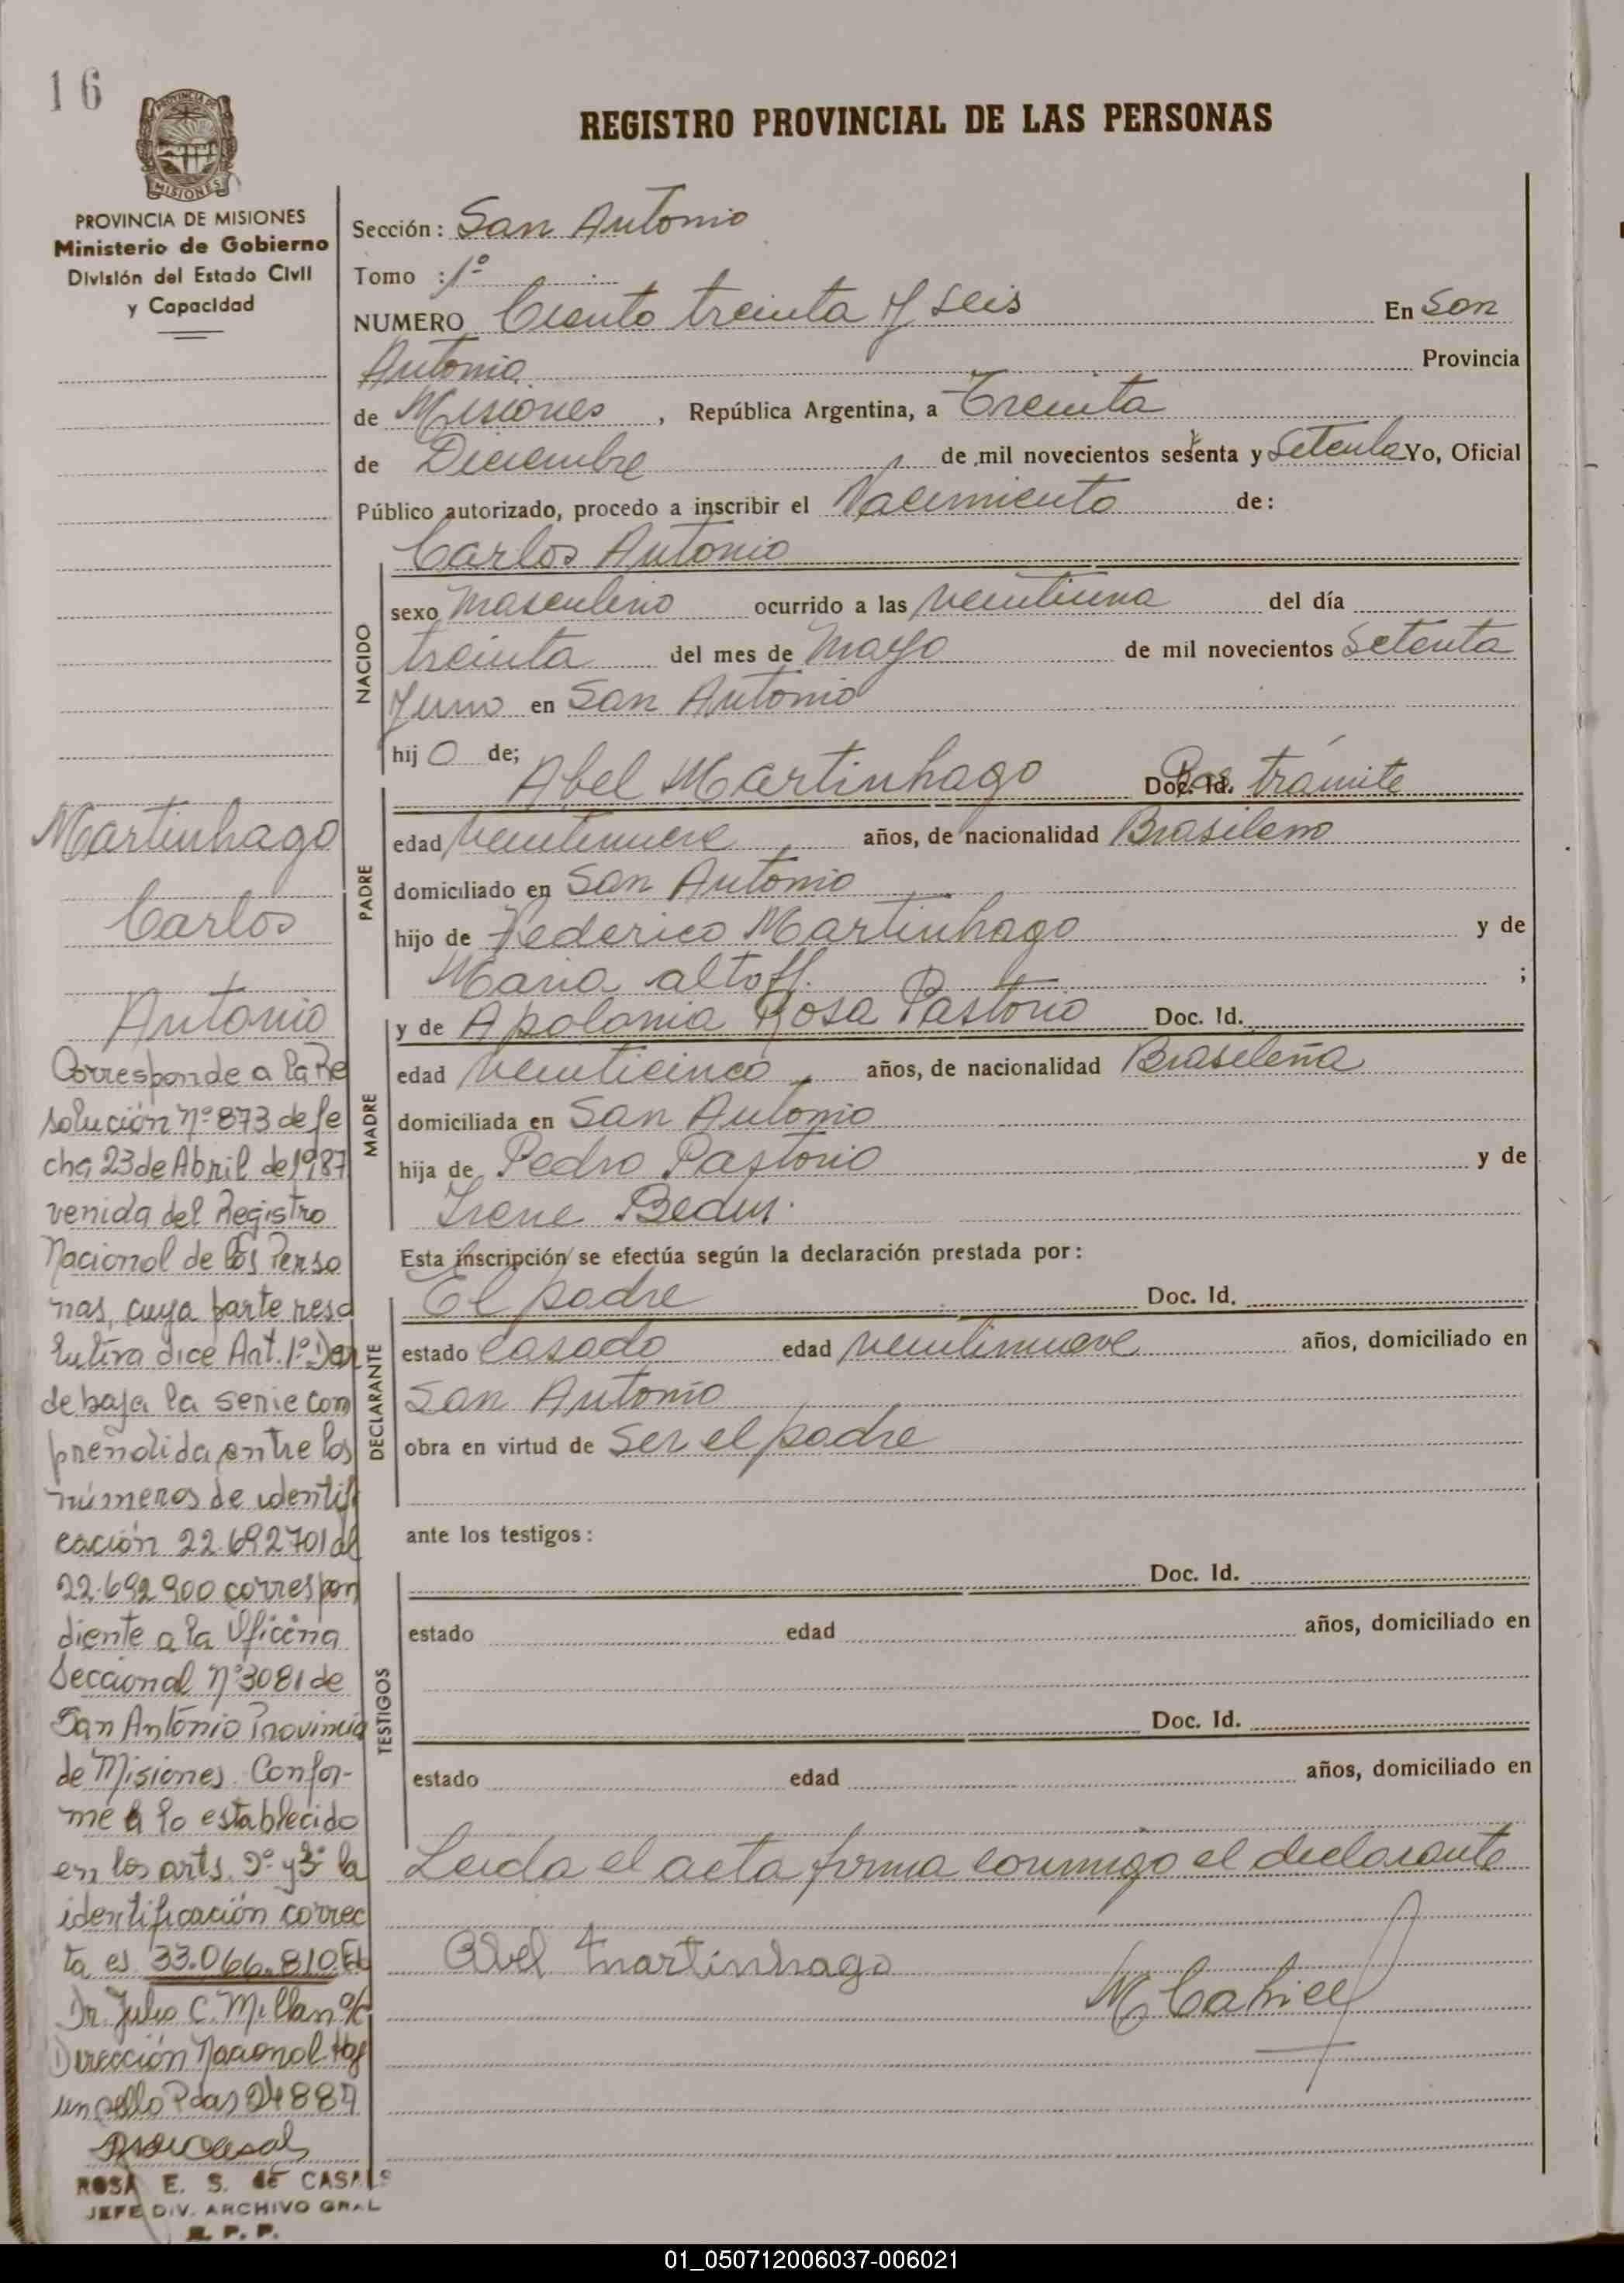 16
REGISTRO PROVINCIAL DE LAS PERSONAS
MISIONES
PROVINCIA DE MISIONES
Ministerio de Gobierno
División del Estado Civil
y Capacidad
Sección: San Antonio
Tomo : 1º
NUMERO Ciento treinta y seis En San
Antonio Provincia
de Misiones, República Argentina, a Treinta
de Diciembre de mil novecientos sesenta y Setenta Yo, Oficial
Público autorizado, procedo a inscribir el Nacimiento de:
Carlos Antonio
NACIDO
sexo Masculino ocurrido a las veintiuna del día
treinta del mes de Mayo de mil novecientos Setenta
y uno en San Antonio
hij o de;
Abel Martinhago Doc. Id. trámite
PADRE
edad veintinueve años, de nacionalidad Brasileno
domiciliado en San Antonio
hijo de Federico Martinhago y de
Maria altoff. ;
MADRE
y de Apolonia Rosa Pastorio Doc. Id.
edad veinticinco años, de nacionalidad Brasileña
domiciliada en San Antonio
hija de Pedro Pastorio y de
Irene
Esta inscripción se efectúa según la declaración prestada por:
DECLARANTE
El padre Doc. Id.
estado Casado edad veintinueve años, domiciliado en
San Antonio
obra en virtud de Ser el padre
ante los testigos:
TESTIGOS
Doc. Id.
estado edad años, domiciliado en
Doc. Id.
estado edad años, domiciliado en
Leida el acta firma conmigo el declarante
Abel Martinhago
Martinhago
Carlos
Antonio
Corresponde a la Re
solución Nº 873 de fe
cha 23 de Abril de 1987
venida del Registro
Nacional de las Perso
nas, cuya parte reso
lutiva dice Art. 1º Dar
de baja la serie com
prendida entre los
números de identifi
cación 22.692701 al
22.692900 correspon
diente a la Oficina
Seccional Nº 3081 de
San Antonio Provincia
de Misiones. Confor-
me a lo establecido
en los arts. 2º y 3º la
identificación correc
ta es 33.066.810
Dr. Julio C. Millan
Dirección Nacional Hay
un sello Pdas 24887
ROSA E. S. de CASALS
JEFE DIV. ARCHIVO GRAL
R. P. P.
01_050712006037-006021